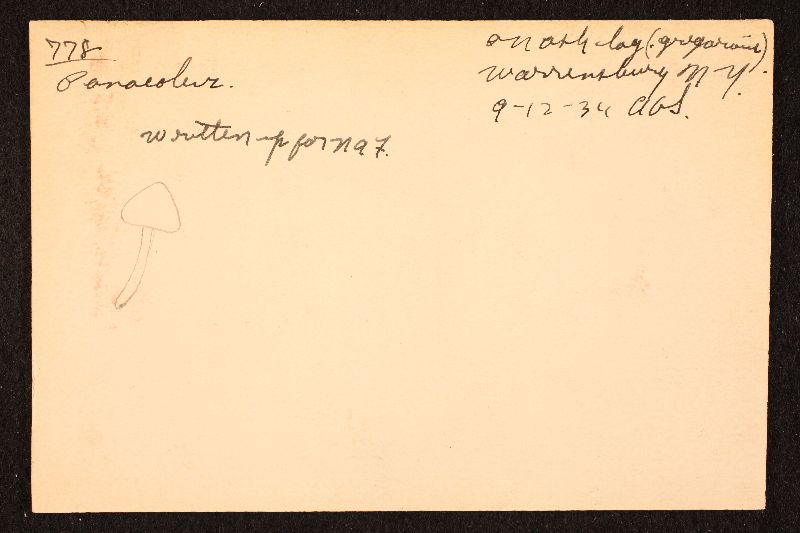 778
Panaeolus.
on ash log (gregarious)
Warrensburg N.Y.
9-12-34 AHS.
written up for NAF.